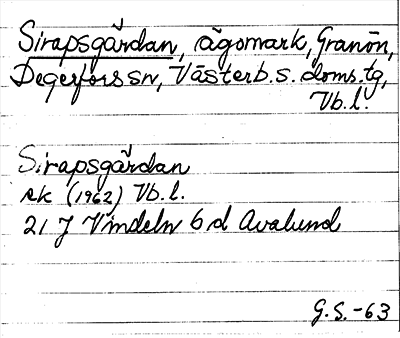 Sirapsgärdan, ägomark, Granön,
Degerfors sn, Västerb. s. doms.tg,
Vb.l.
Sirapsgärdan
ek (1962) Vb.l.
21 J Vindeln 6 d Avalund
G.S.-63